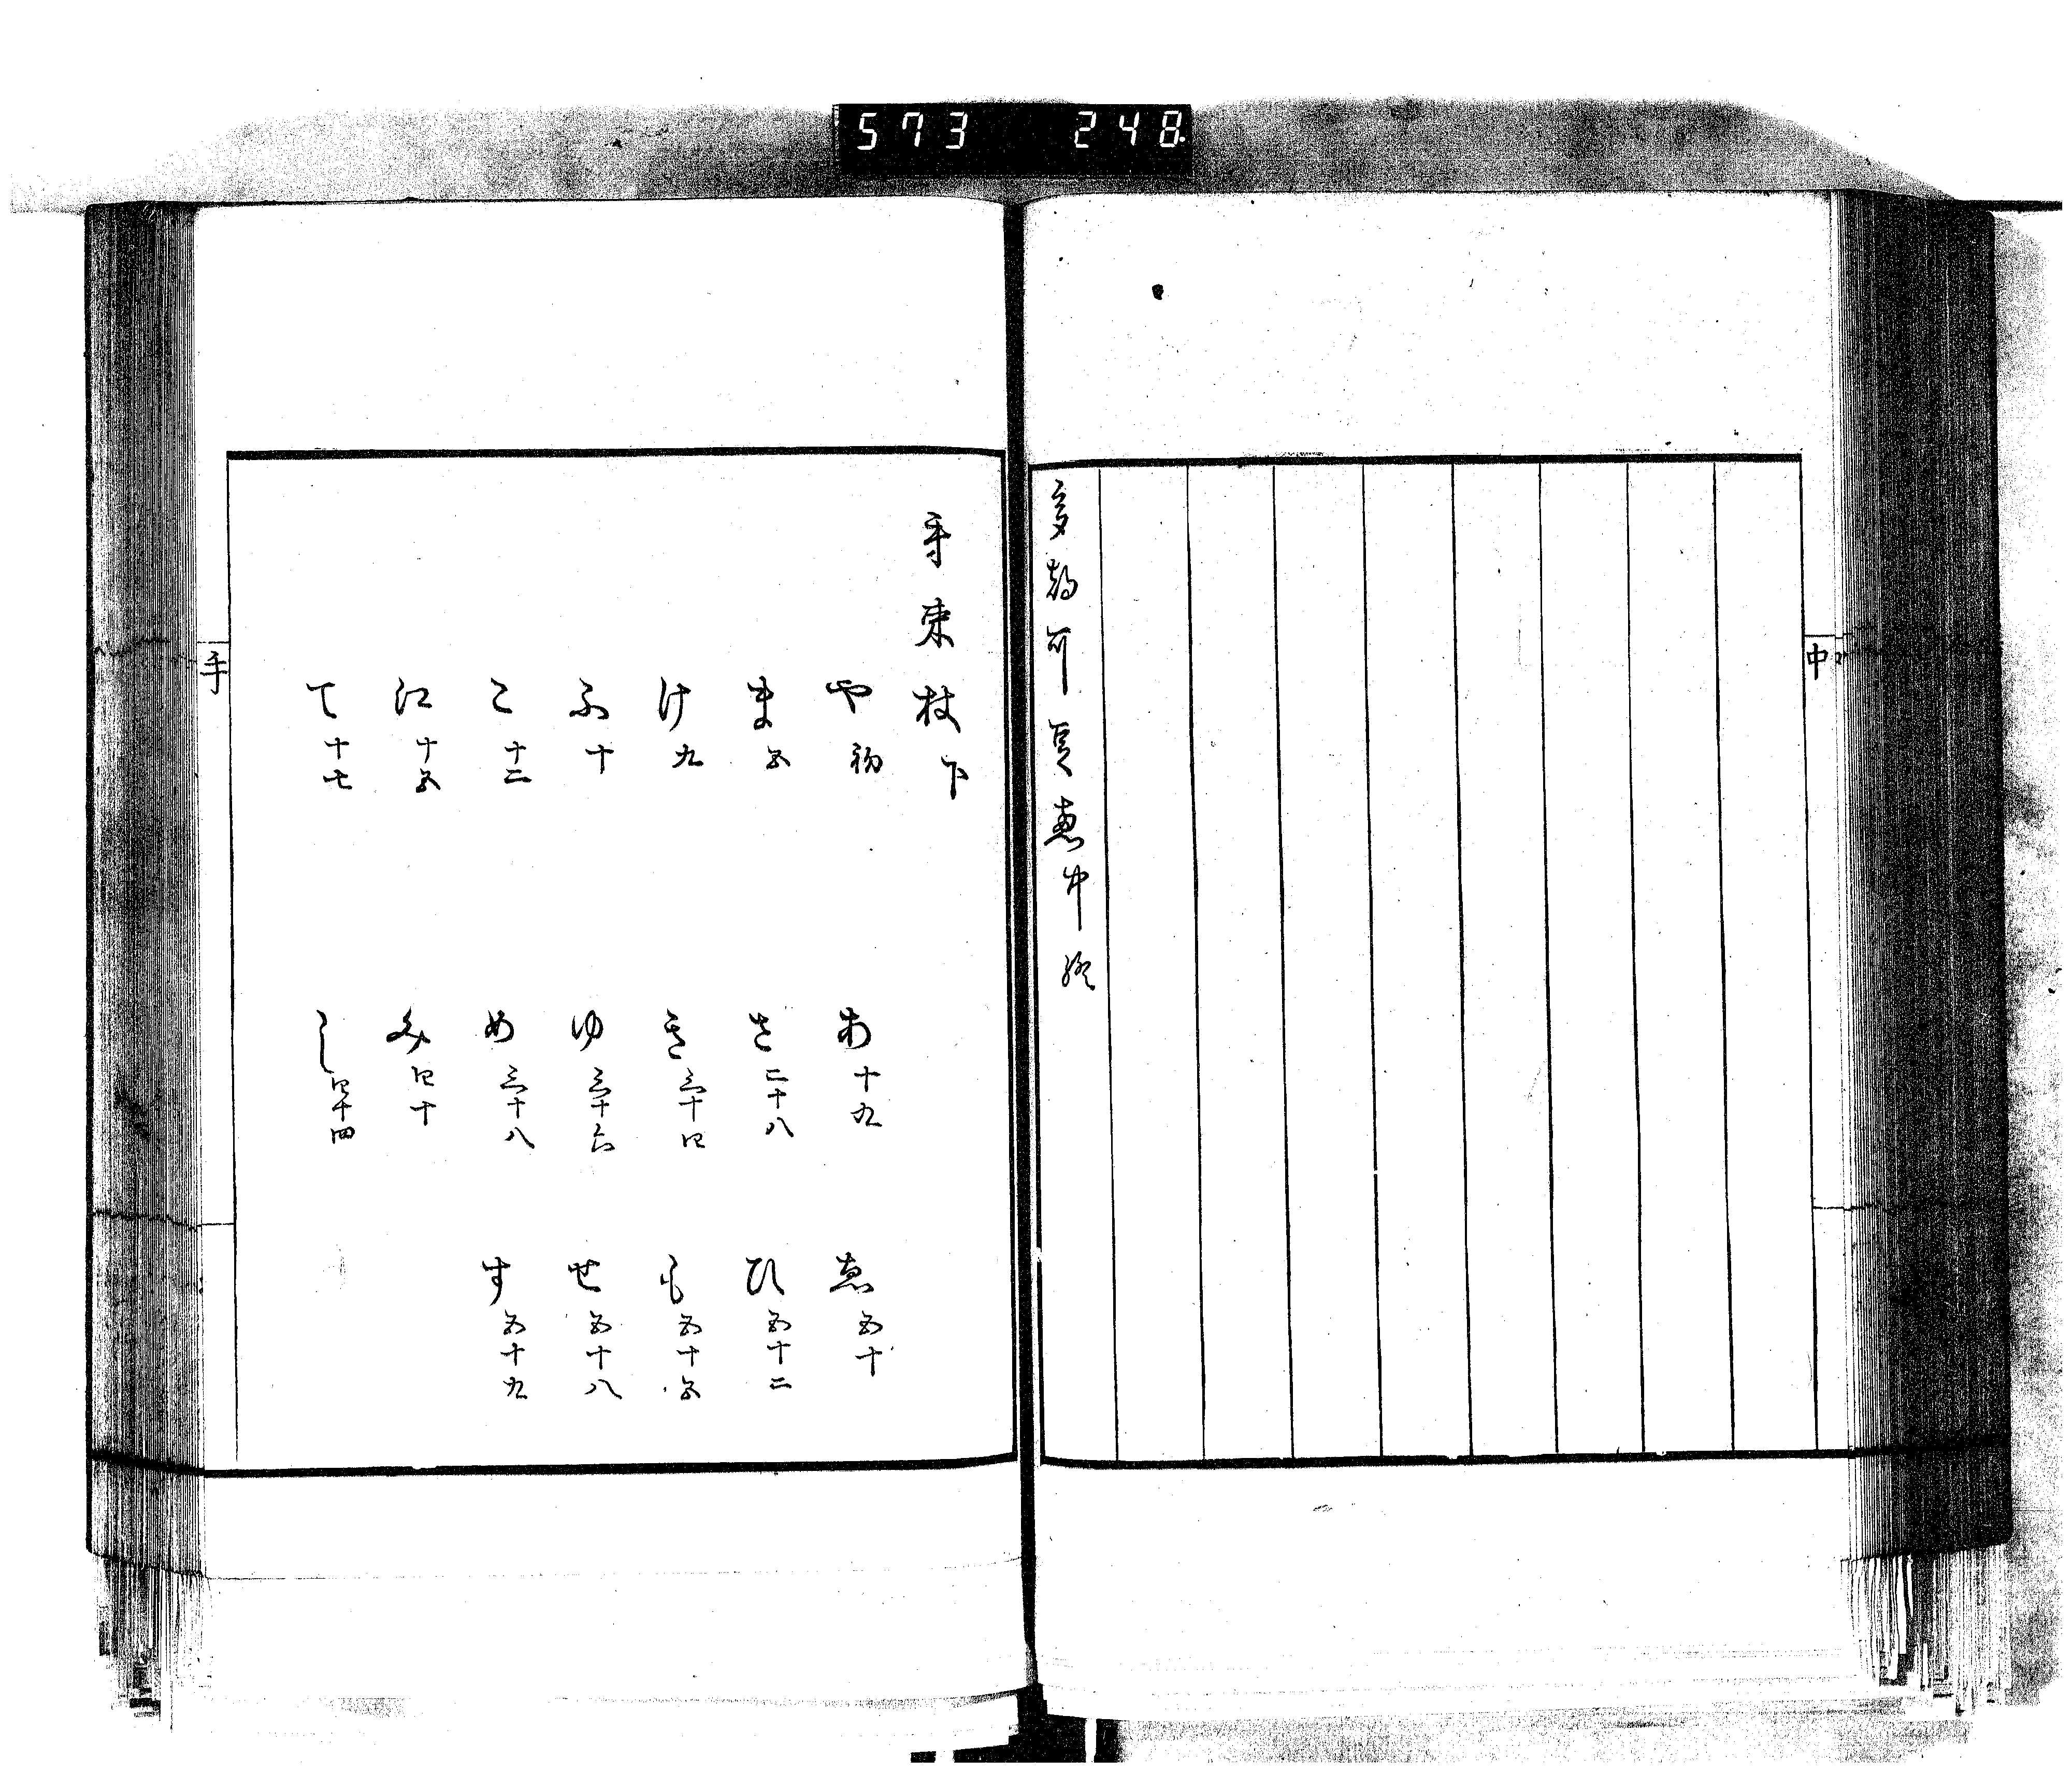 573 248
中
多都可豆恵中終
手束杖下
や初
ま五
け九
ふ十
こ十二
江十五
て十七
あ十九
さ二十八
き三十四
ゆ三十六
め三十八
み四十
し四十四
ゑ五十
ひ五十二
も五十五
せ五十八
す五十九
手